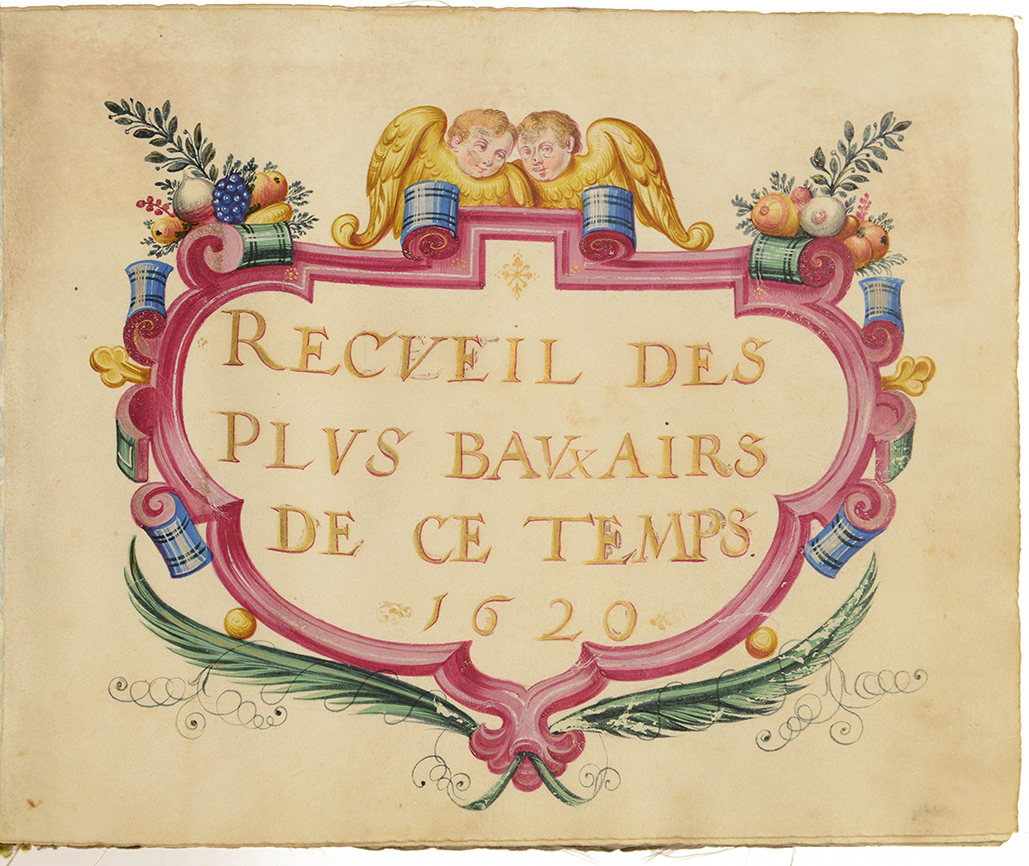 RECVEIL DES
PLVS BAVXAIRS
DE CE TEMPS.
1620